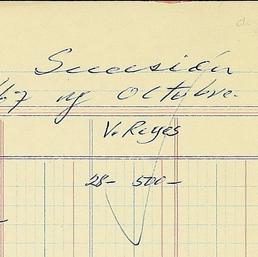 Sucesión
y Octubre.
V. Reyes
28- 500-